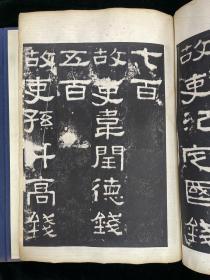 故吏紀定國錢
七百
故吏韋閏德錢
五百
故吏孫升高錢